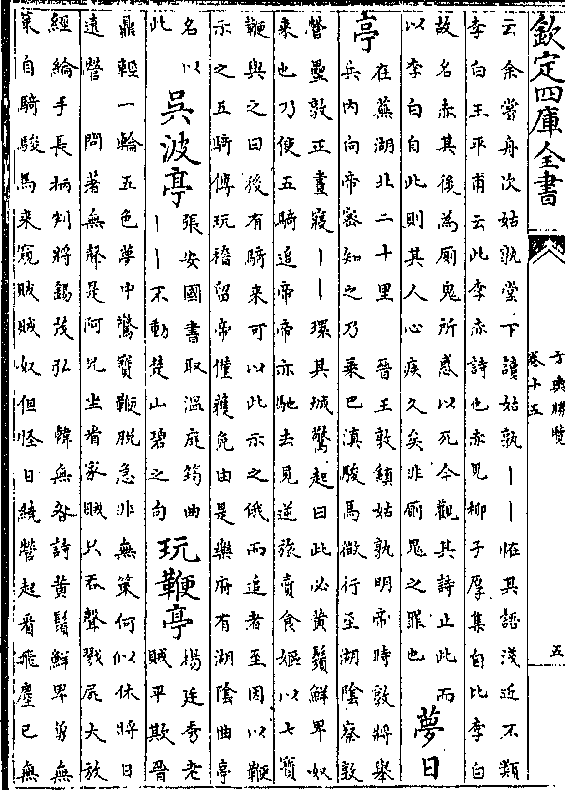 欽定四庫全書
方輿勝覽
卷十五
五
云余嘗舟次姑孰堂下讀姑孰丨丨怪其語淺近不類
李白王平甫云此李赤詩也赤見柳子厚集自比李白
故名赤其後為廁鬼所惑以死今觀其詩止此而
以李白自比則其人心疾久矣非廁鬼之罪也
夢日
亭
在蕪湖北二十里 晉王敦鎮姑孰明帝時敦將舉
兵内向帝密知之乃乗巴滇駿馬微行至湖隂察敦
營壘敦正晝寢丨丨環其城驚起曰此必黄鬚鮮卑奴
來也乃使五騎追帝帝亦馳去見逆旅賣食嫗以七寳
鞭與之曰後有騎來可以此示之俄而追者至因以鞭
示之五騎傳玩稽留帝僅獲免由是樂府有湖隂曲亭
名以
此
吳波亭
張安國書取溫庭筠曲
丨丨不動楚山碧之句
玩鞭亭
楊廷秀老
賊平欺晉
鼎輕一輪五色夢中驚寳鞭脱急非無策何似休將日
遶營 問著無聲是阿兄坐看家賊只吞聲戮屍大放
經綸手長柄判將錫茂弘 韓無咎詩黄鬚鮮卑勇無
策自騎駿馬來窺賊賊奴但怪日繞營起看飛塵已無